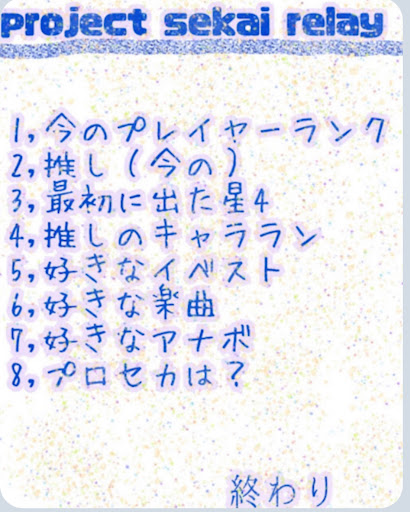 project sekai relay
1,今のプレイヤーランク
2,推し(今の)
3,最初に出た星4
4,推しのキャララン
5,好きなイベスト
6,好きな楽曲
7,好きなアナボ
8,プロセカは?
終わり